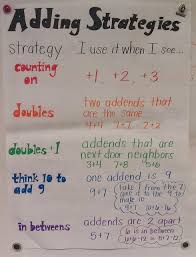 Adding Strategies
strategy I use it when I see...
counting on +1, +2, +3
doubles two addends that are the same
4+4 7+7 2+2
doubles +1 addends that are next door neighbors
3+4 7+8 5+6
think 10 to add 9 one addend is 9
9+7
in betweens addends are 2 apart
5+7 6 is in between